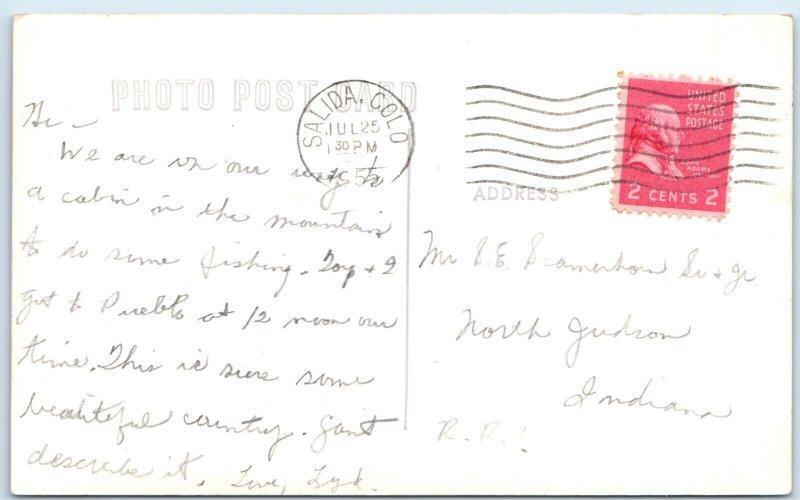 PHOTO POST CARD
Hi -
We are on our way to
a cabin in the mountains
to do some fishing. + I
got to Pueblo at 12 noon our
time. This is sure some
beautiful country. Can't
describe it. Love,
SALIDA, COLO
JUL 25
1 30 PM
UNITED
STATES
POSTAGE
JOHN
ADAMS
2 CENTS 2
ADDRESS
Mr S.E. Scamerhorn Sr + Jr
North Judson
Indiana
R.R. 1